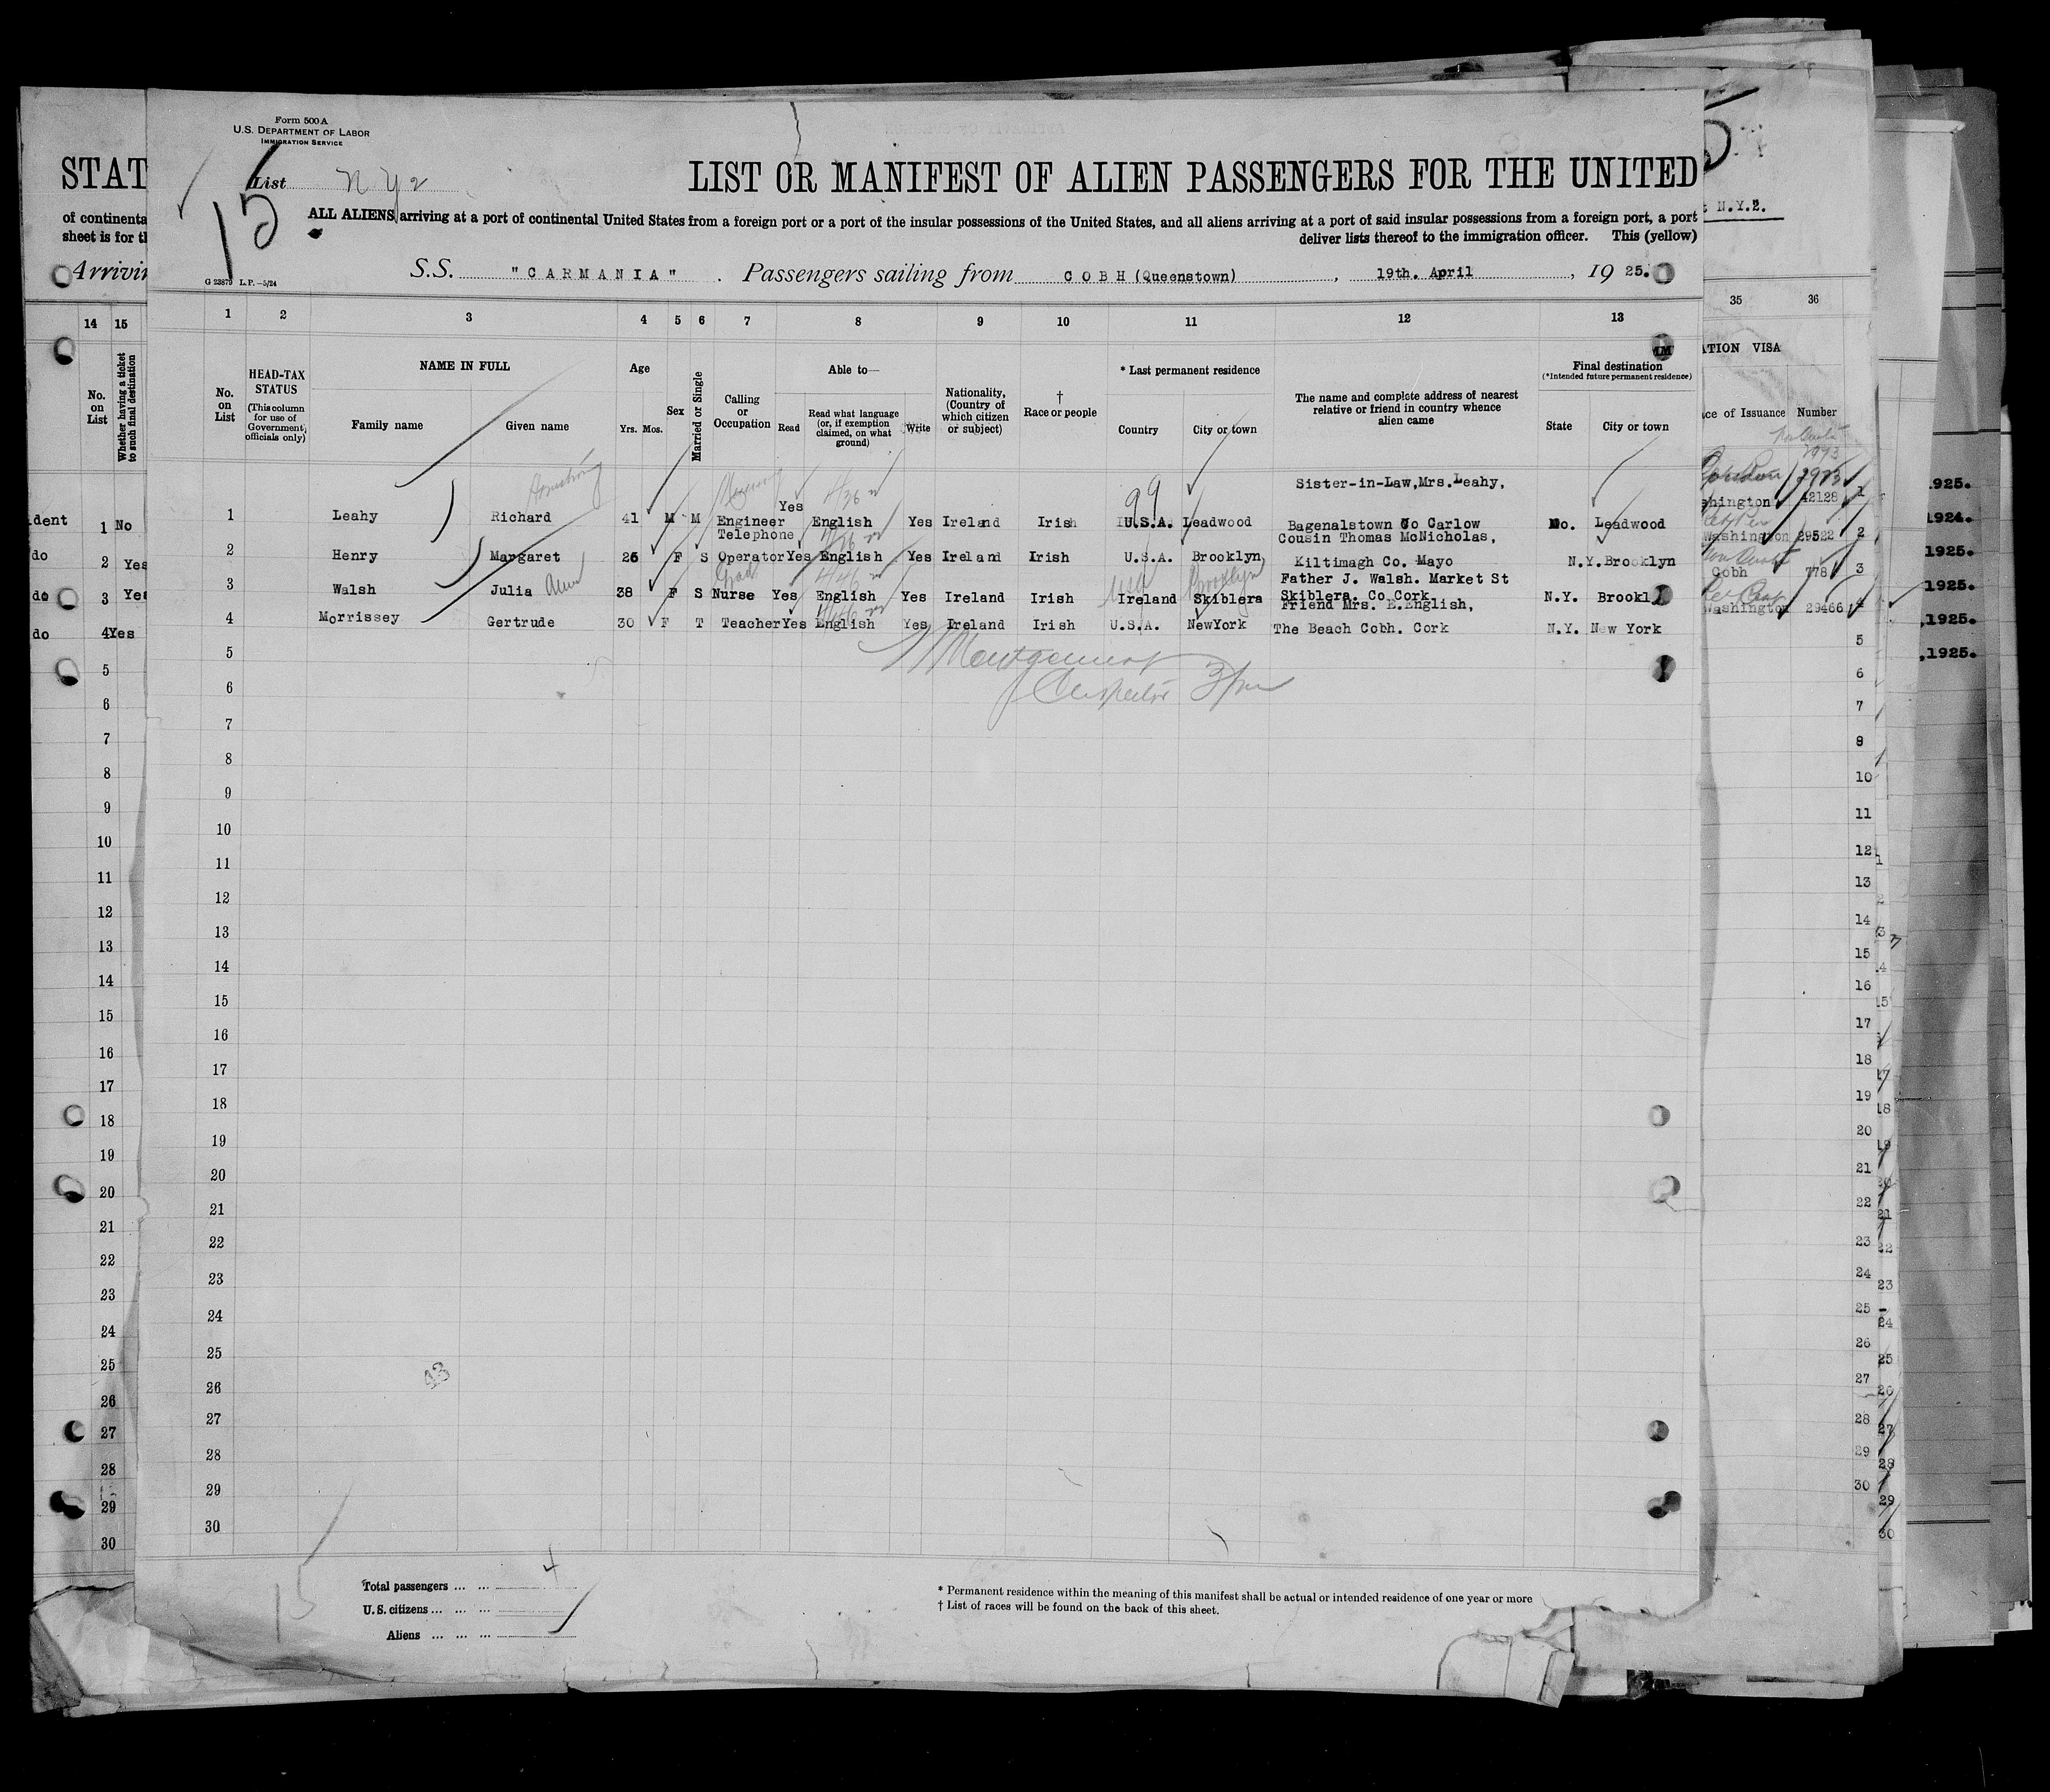 Form 500A
U.S. DEPARTMENT OF LABOR
IMMIGRATION SERVICE
List N Y 2
15
LIST OR MANIFEST OF ALIEN PASSENGERS FOR THE UNITED
ALL ALIENS arriving at a port of continental United States from a foreign port or a port of the insular possessions of the United States, and all aliens arriving at a port of said insular possessions from a foreign port, a port
deliver lists thereof to the immigration officer. This (yellow)
S.S. "CARMANIA". Passengers sailing from COBH (Queenstown), 19th. April, 1925.
G 23879 L.P.—5/24
STAT
of continenta
sheet is for th
Arrivin
t N.Y.2.
1 2 3 4 5 6 7 8 9 10 11 12 13
14 15
35 36
No. on List
HEAD-TAX STATUS
(This column for use of Government officials only)
NAME IN FULL
Family name
Given name
Age
Yrs. Mos.
Sex
Married or Single
Calling or Occupation
Able to—
Read
Read what language (or, if exemption claimed, on what ground)
Write
Nationality, (Country of which citizen or subject)
† Race or people
* Last permanent residence
Country
City or town
The name and complete address of nearest relative or friend in country whence alien came
Final destination
(*Intended future permanent residence)
State
City or town
No. on List
Whether having a ticket to such final destination
ATION VISA
ace of Issuance
Number
1 Leahy Richard 41 M M Engineer Yes English Yes Ireland Irish U.S.A. Leadwood Sister-in-Law,Mrs.Leahy, Bagenalstown Co Carlow Mo. Leadwood
2 Henry Margaret 26 F S Telephone Operator Yes English Yes Ireland Irish U.S.A. Brooklyn Cousin Thomas McNicholas, Kiltimagh Co. Mayo N.Y. Brooklyn
3 Walsh Julia Ann 38 F S Nurse Yes English Yes Ireland Irish Ireland Skiblera Father J. Walsh. Market St Skiblera. Co Cork N.Y. Brookl
4 Morrissey Gertrude 30 F T Teacher Yes English Yes Ireland Irish U.S.A. NewYork Friend Mrs. E.English, The Beach Cobh. Cork N.Y. New York
Armstrong
99
USA Brooklyn
Montgomery
Inspector
dent 1 No
do 2 Yes
do 3 Yes
do 4 Yes
2993
shington 42128
Washington 29522
Cobh 778
Washington 29466
1925.
1924.
1925.
1925.
,1925.
,1925.
5
6
7
8
9
10
11
12
13
14
15
16
17
18
19
20
21
22
23
24
25
26
27
28
29
30
43
15
Total passengers ... ... 4
U.S. citizens ... ... ...
Aliens ... ... ...
* Permanent residence within the meaning of this manifest shall be actual or intended residence of one year or more
† List of races will be found on the back of this sheet.